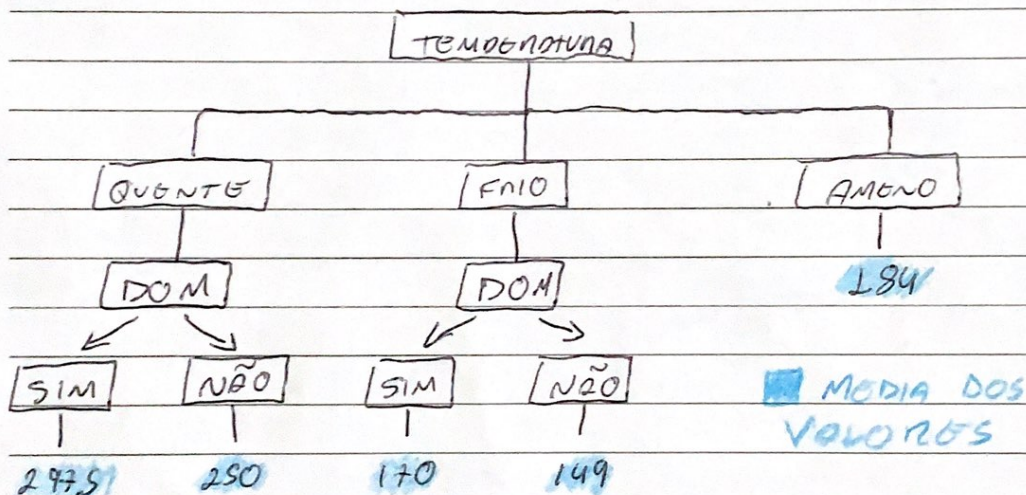 TEMPERATURA
QUENTE FRIO AMENO
DOM DOM 184
SIM NÃO SIM NÃO MEDIA DOS
VALORES
250 170 149